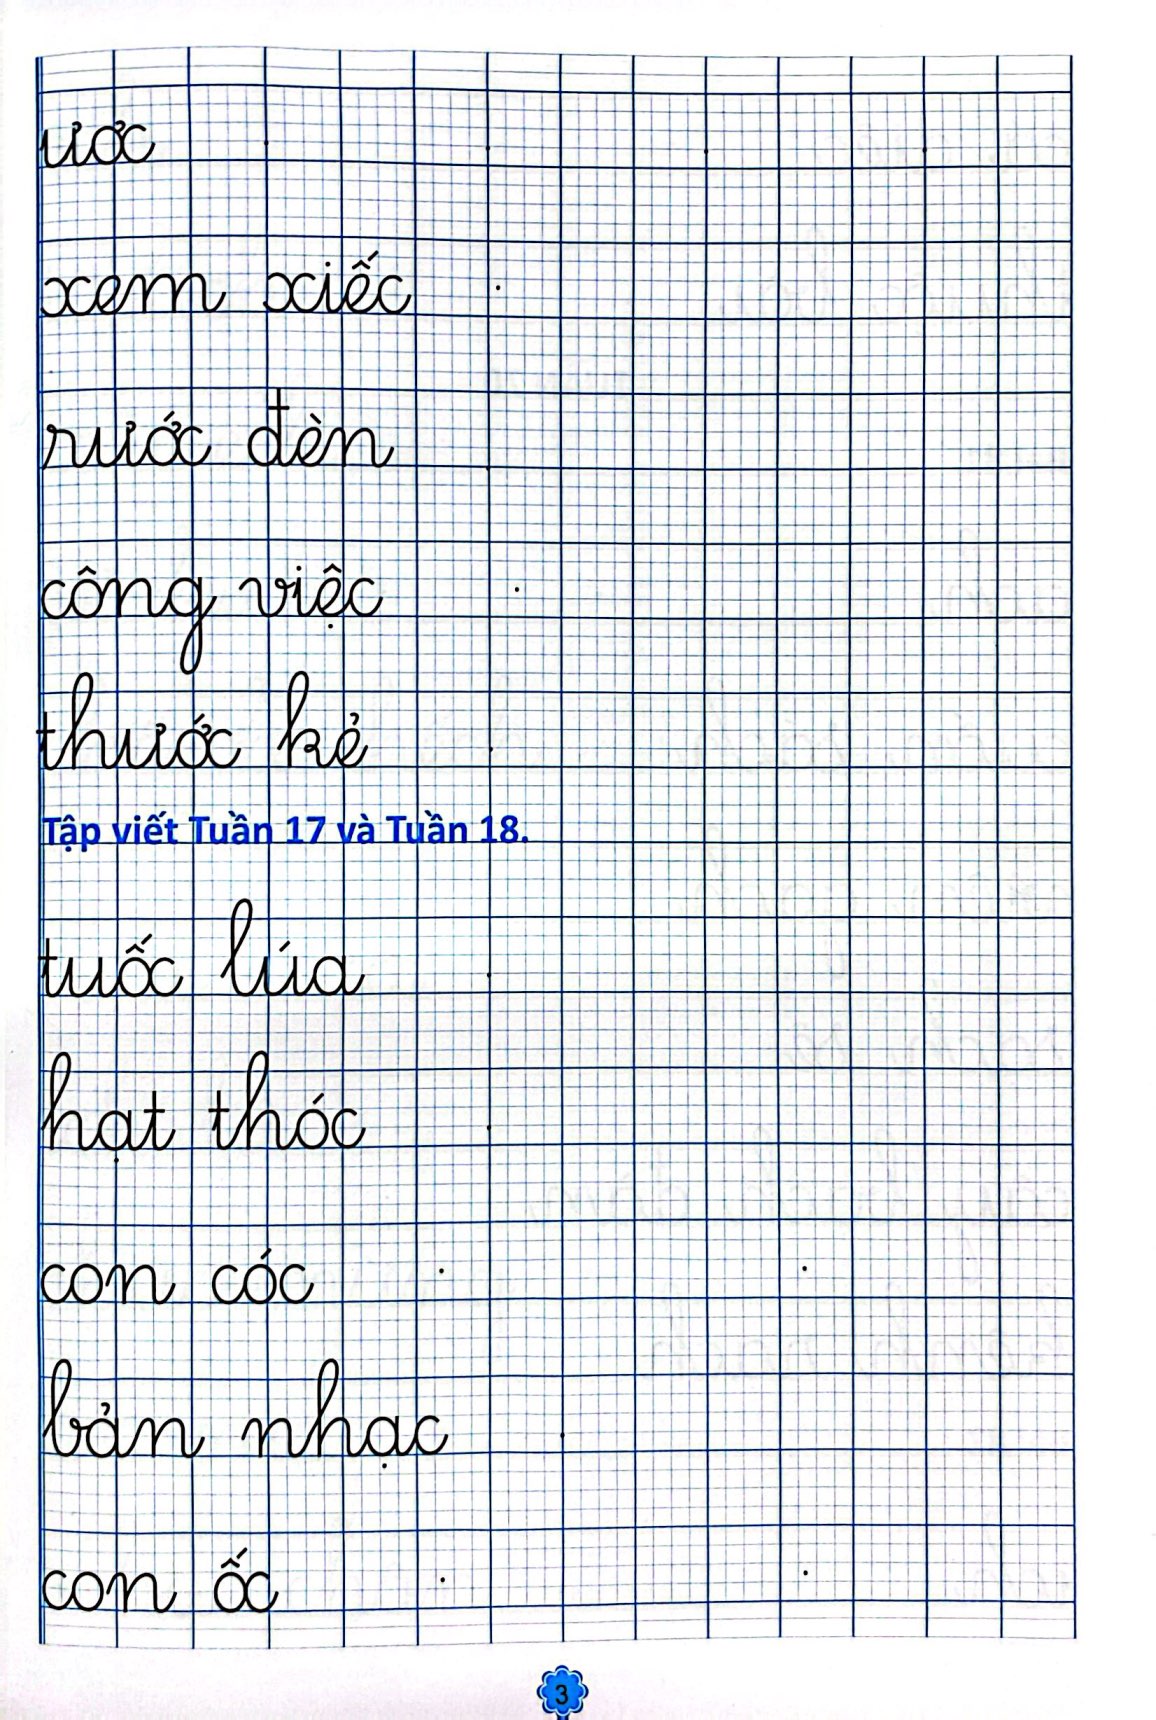 ươc
xem xiếc
rước đèn
công việc
thước kẻ
Tập viết Tuần 17 và Tuần 18.
tuốc lúa
hạt thóc
con cóc
bản nhạc
con ốc
3